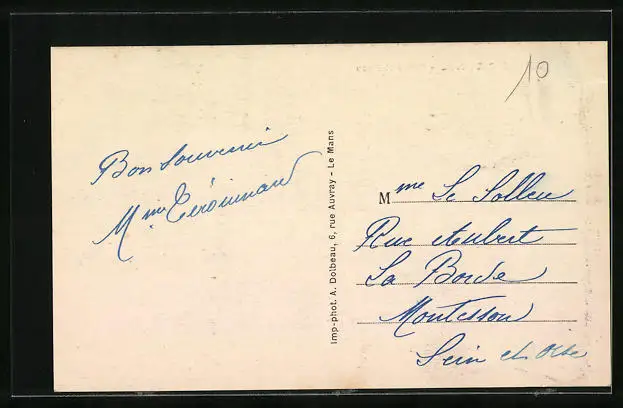 10
Bon Souvenir
Mme
Imp-phot. A. Dolbeau, 6, rue Auvray - Le Mans
Mme Le Sollen
Rue Aubert
La Borde
Montesson
Seine et Oise